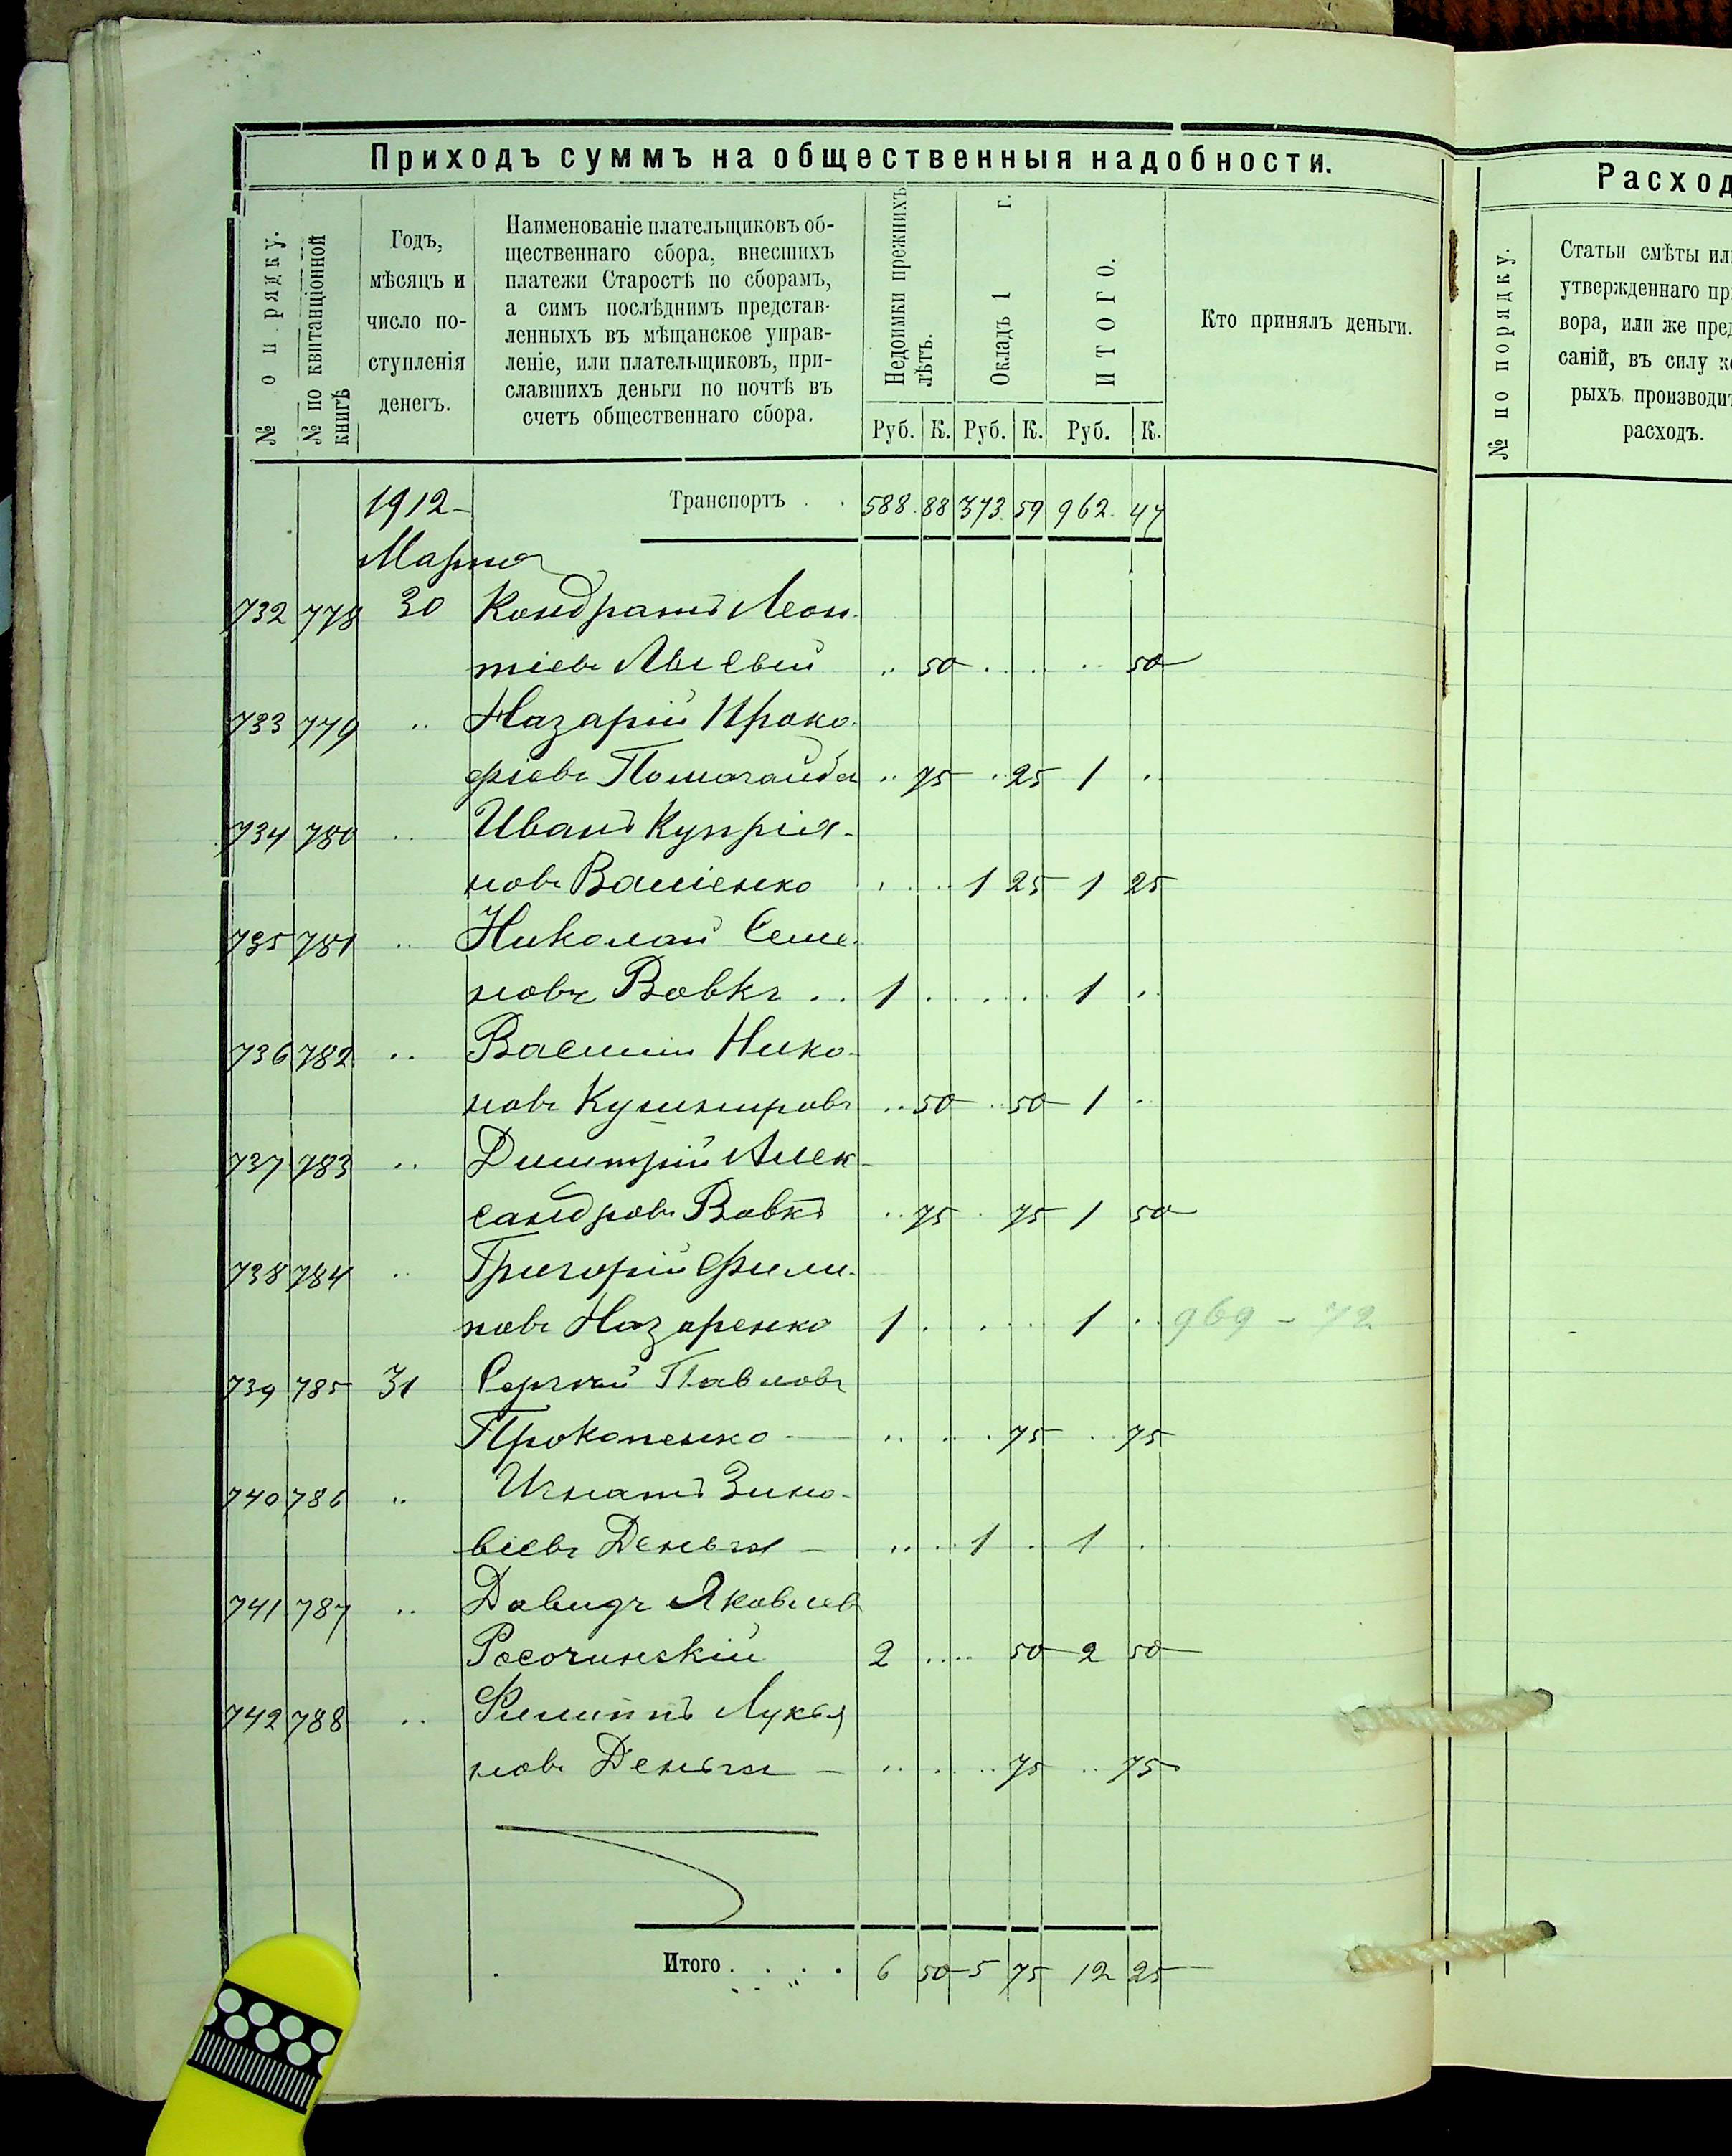 Приходъ суммъ на общественныя надобности.
№ по рядку.
№ по квитанціонной книгѣ
Годъ,
мѣсяцъ и
число по-
ступленія
денегъ.
Наименованіе плательщиковъ об-
щественнаго сбора, внесшихъ
платежи Старостѣ по сборамъ,
а симъ послѣднимъ представ-
ленныхъ въ мѣщанское управ-
леніе, или плательщиковъ, при-
славшихъ деньги по почтѣ въ
счетъ общественнаго сбора.
Недоимки прежнихъ лѣтъ.
Окладъ 1 г.
ИТОГО.
Кто принялъ деньги.
Руб. К. Руб. К. Руб. К.
1912 - Транспортъ . . 588. 88 373. 59 962. 47
Марта
732 778 30 Кондратъ Леон-
тіевъ .. 50 . . . .. 50
733 779 .. Назарій Проко-
фіевъ .. 75 . 25 1 ..
734 780 .. Иванъ Купрія-
новъ Вашенко . . . . 1 25 1 25
735 781 .. Николай Семе-
новъ Вовкъ .. 1 . . . . . 1 ..
736 782 .. Василій Нико-
новъ Кушнировъ .. 50 . 50 1 .
737 783 .. Димитрій Алек-
сандровъ Вовкъ .. 75 . 75 1 50
738 784 .. Григорій Фили-
повъ Назаренко 1 . . . . 1 .. 969 - 72
739 785 31 Сергѣй Павловъ
Прокопенко - .. . . . 75 .. 75
740 786 .. Игнатъ Зино-
віевъ Деньга - .. . . 1 . 1 .
741 787 .. Давидъ Яковлев
Росочинскій 2 .... 50 2 50
742 788 .. Филиппъ Лукья
новъ Деньга - .. . . .. 75 .. 75
Итого . . . . 6 50 5 75 12 25
Расход
№ по порядку.
Статьи смѣты ил
утвержденнаго пр
вора, или же пред
саній, въ силу к
рыхъ производит
расходъ.